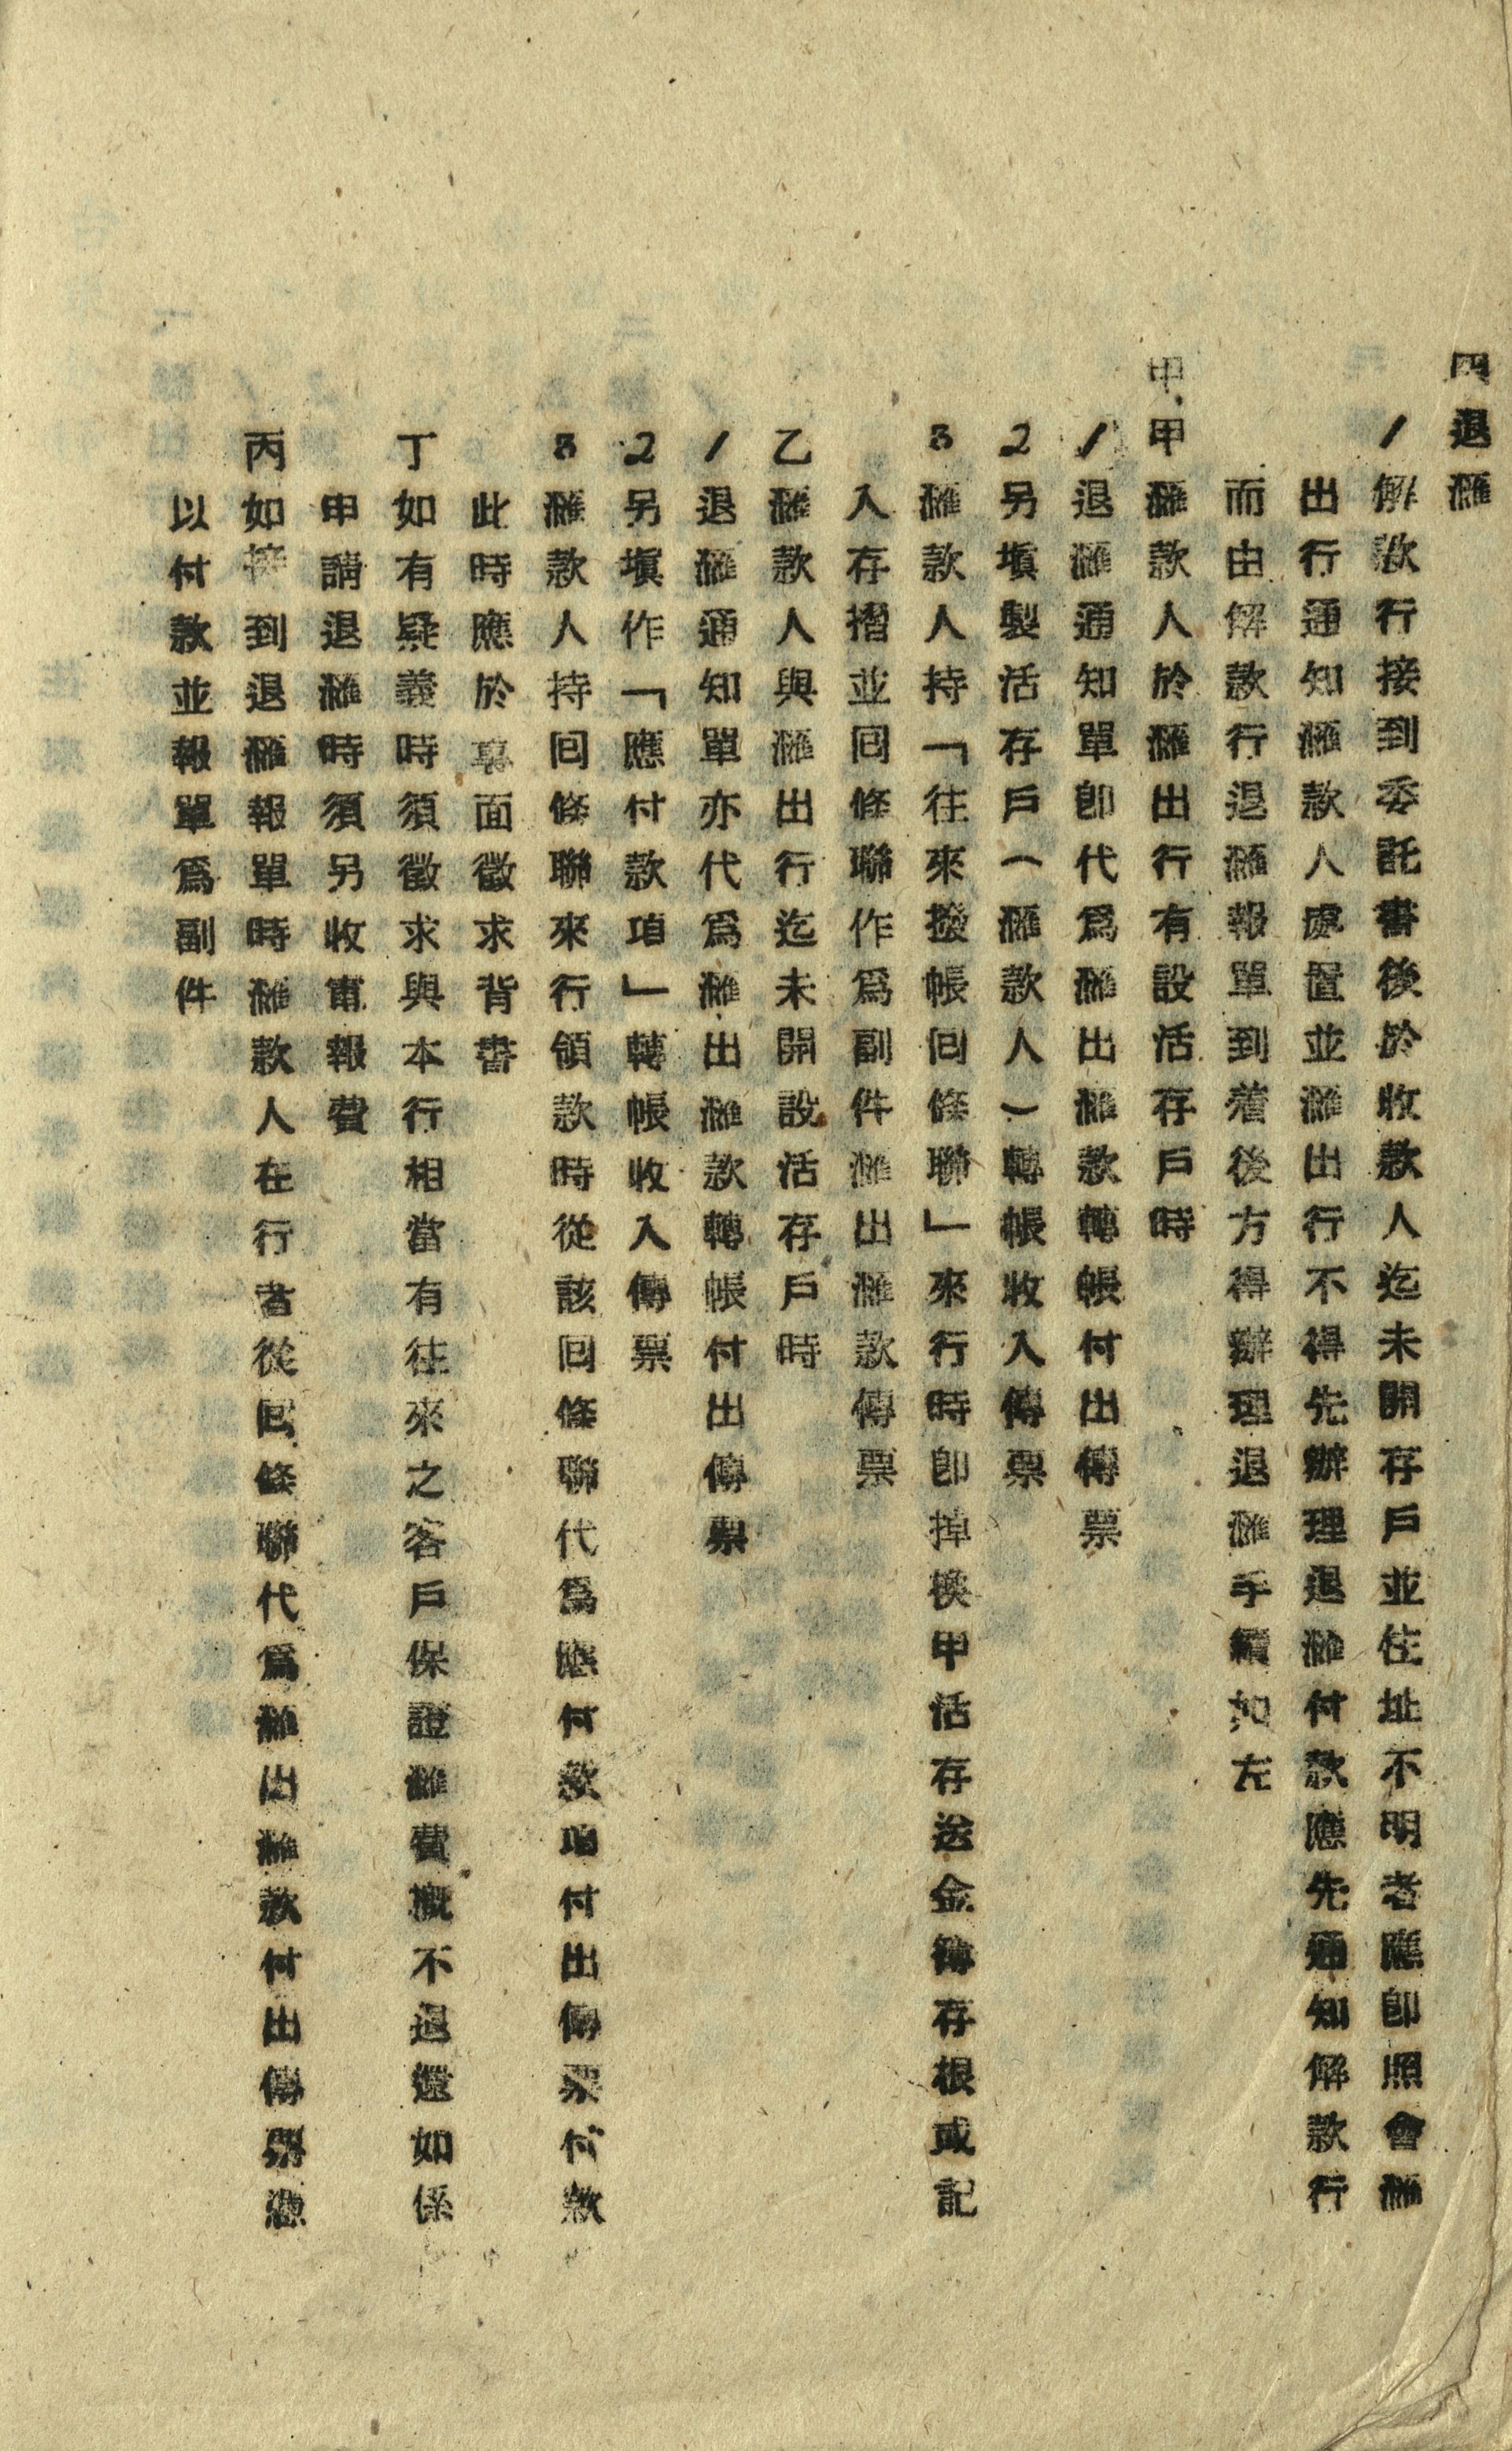 四退滙
1解款行接到委託書後於收款人迄未開存戶並住址不明者應卽照會滙
出行通知滙款人處置並滙出行不得先辦理退滙付款應先通知解款行
而由解款行退滙報單到着後方得辦理退滙手續如左
甲甲滙款人於滙出行有設活存戶時
1退滙通知單卽代爲滙出滙款轉帳付出傳票
2另塡製活存戶(滙款人)轉帳收入傳票
3滙款人持「往來撥帳回條聯」來行時卽掉換甲活存送金簿存根或記
入存摺並回條聯作爲副件滙出滙款傳票
乙滙款人與滙出行迄未開設活存戶時
1退滙通知單亦代爲滙出滙款轉帳付出傳票
2另塡作「應付款項」轉帳收入傳票
3滙款人持回條聯來行領款時從該回條聯代爲應付款項付出傳票付款
此時應於裏面徵求背書
丁如有疑義時須徵求與本行相當有往來之客戶保證滙費概不退還如係
申請退滙時須另收電報費
丙如接到退滙報單時滙款人在行者從回條聯代爲滙出滙款付出傳票憑
以付款並報單爲副件